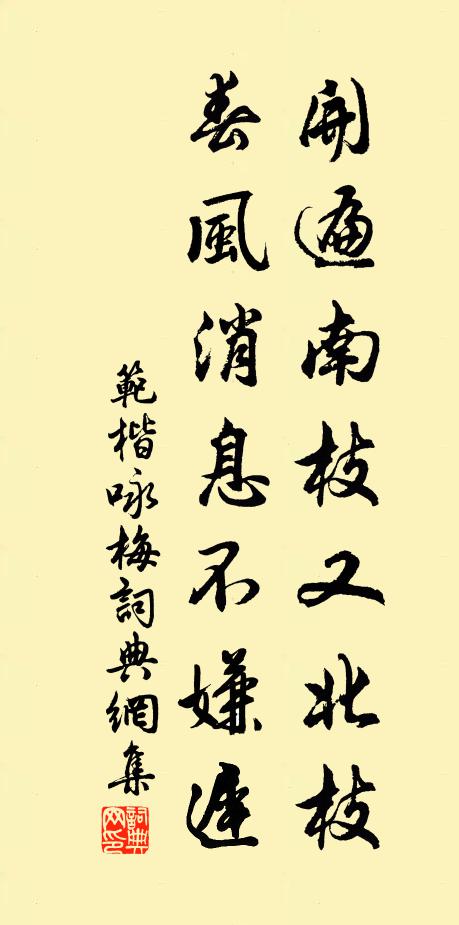 開遍南枝又北枝
春風消息不嫌遲
範楷咏梅詞典網集
詞典網印